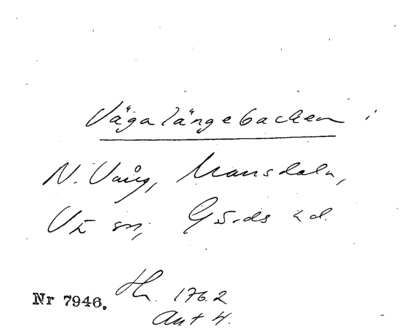 Vägalängebacken i
N. Vång, Mansdala,
Vå sn, Gärds hd.
Nr 7946. Hn. 176.2
Ant 4.